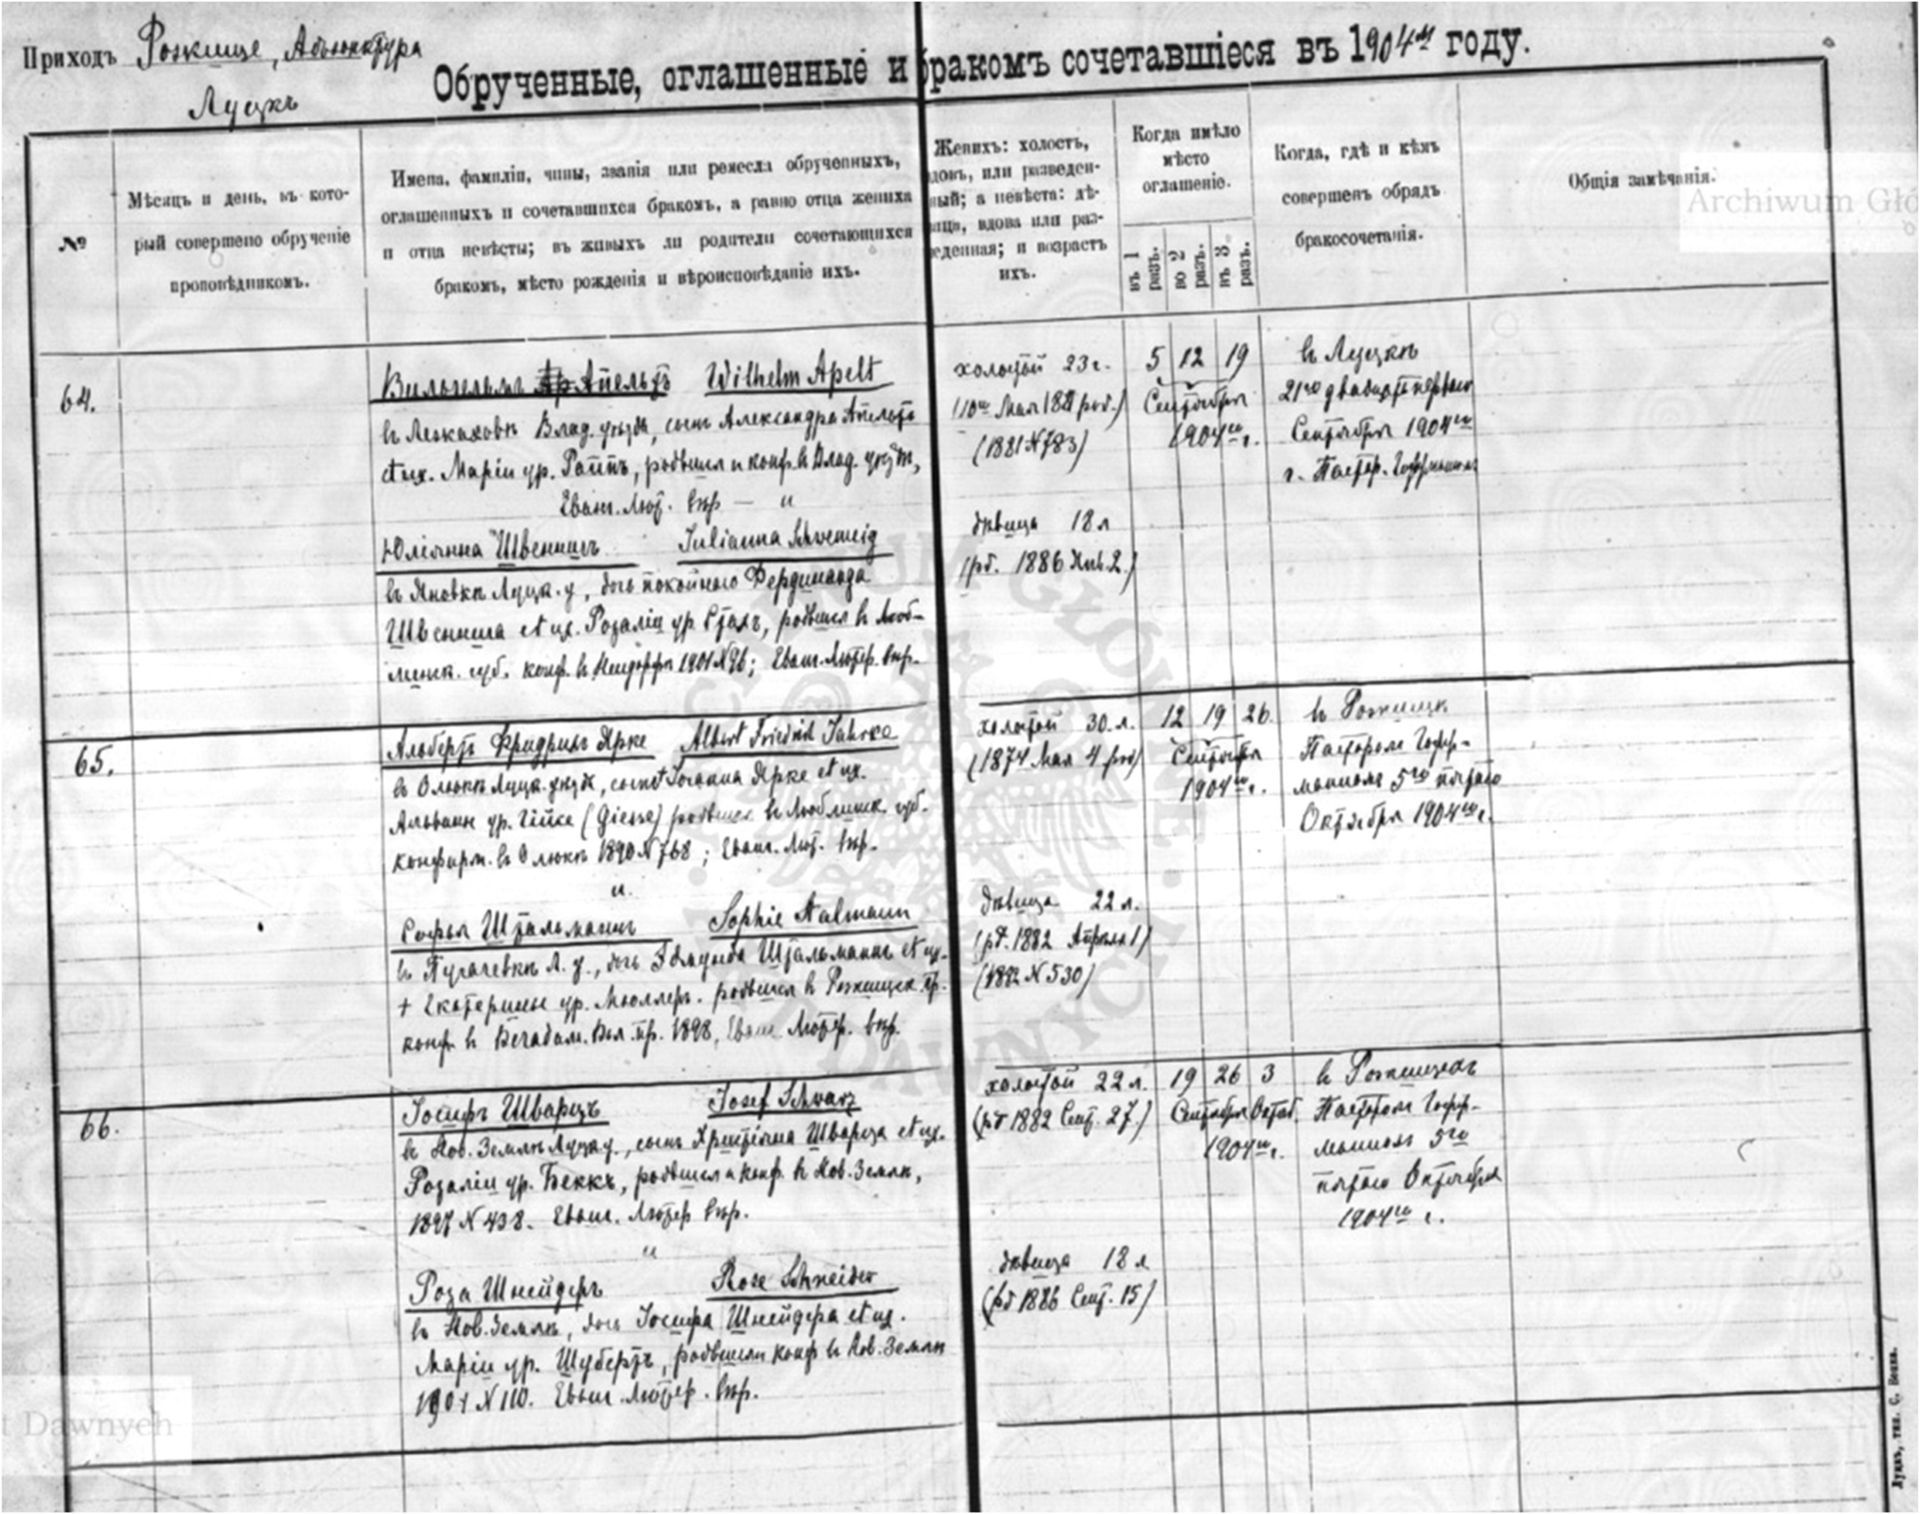 Приходъ Рожище, Адъюнктура
Луцкъ
Обрученные, оглашенные и бракомъ сочетавшіеся въ 1904м году.
№
Мѣсяцъ и день, въ кото-
рый совершено обрученіе
проповѣдникомъ.
Имена, фамиліи, чины, званія или ремесла обрученныхъ,
оглашенныхъ и сочетавшихся бракомъ, а равно отца жениха
и отца невѣсты; въ живыхъ ли родители сочетающихся
бракомъ, мѣсто рожденія и вѣроисповѣданіе ихъ.
Женихъ: холостъ,
вдовъ, или разведен-
ный; а невѣста: дѣ-
вица, вдова или раз-
веденная; и возрастъ
ихъ.
Когда имѣло
мѣсто
оглашеніе.
въ 1 разъ.
во 2 разъ.
въ 3 разъ.
Когда, гдѣ и кѣмъ
совершенъ обрядъ
бракосочетанія.
Общія замѣчанія.
64.
Вильгельмъ Апельтъ Wilhelm Apelt
Влад. уѣзда, сынъ Александра Апельта
et ux. Маріи ур. Раппъ, родвшися и конф. въ Влад. уѣздѣ,
Еванг. Лют. вѣр. — и
Юліянна Швеницъ Julianna Schwenig
въ Яновкѣ Луцк. у, дочь покойнаго Фердинанда
et ux. Розаліи ур. Сталъ, родвшися въ Люб-
линск. губ. конф. въ 1901 N 96; Еванг. Лютер. вѣр.
холостой 23 г.
(10го Мая 1881 род.)
(1881 N 783)
дѣвица 18 л
(рд. 1886 Янв. 2.)
5 12 19
Сентября
1904го г.
въ Луцкѣ
21го двадцать перваго
Сентября 1904го
г. Пастор. Гоффманомъ
65.
Альбертъ Фридрихъ Ярке Albert Friedrich Jahrke
Луцк. уѣзда, сынъ Іоганна Ярке et ux.
ур. Гійке (Giesse) родвшися въ Люблинск. губ.
конфирм. въ 1890 N 768; Еванг. Лют. вѣр.
и.
Софья Штальманнъ Sophie Stalmann
въ Пугачевкѣ Л. у., дочь Эдмунда Штальманнъ et ux.
+ Екатерины ур. Мюллеръ. родвшися въ Рожищск. пр.
конф. въ 1898, Еванг. Лютер. вѣр.
холостой 30 л.
(1874 Мая 4 род)
дѣвица 22 л.
(рд. 1882 Апрѣля 1)
(1882 N 530)
12 19 26.
Сентября
1904го г.
въ Рожищѣ
Пасторомъ Гофф-
маномъ 5го пятаго
Октября 1904го г.
66.
Іосифъ Шварцъ Josef Schwarz
въ Нов. Землѣ Луцк у., сынъ Христіяна Шварца et ux.
Розаліи ур. Беккъ, родвшися и конф. въ Нов. Землѣ,
1897 N 438. Еванг. Лютер вѣр.
и
Роза Шнейдеръ Rosa Schneider
въ Нов. Землѣ, дочь Іосифа Шнейдера et ux.
Маріи ур. Шубертъ, родвшися конф въ Нов. Землѣ
1901 N 110. Еванг. Лютер. вѣр.
холостой 22 л.
(рд 1882 Сент. 27.)
дѣвица 18 л
(рд 1886 Сент. 15)
19 26 3
Сентября Октяб.
1904го г.
въ Рожищахъ
Пасторомъ Гофф-
маномъ 5го
пятаго Октября
1904го г.
Луцкъ, тип. С. Бенка.
Archiwum Głó
t Dawnych
ARCHIWUM GŁÓWNE AKT DAWNYCH